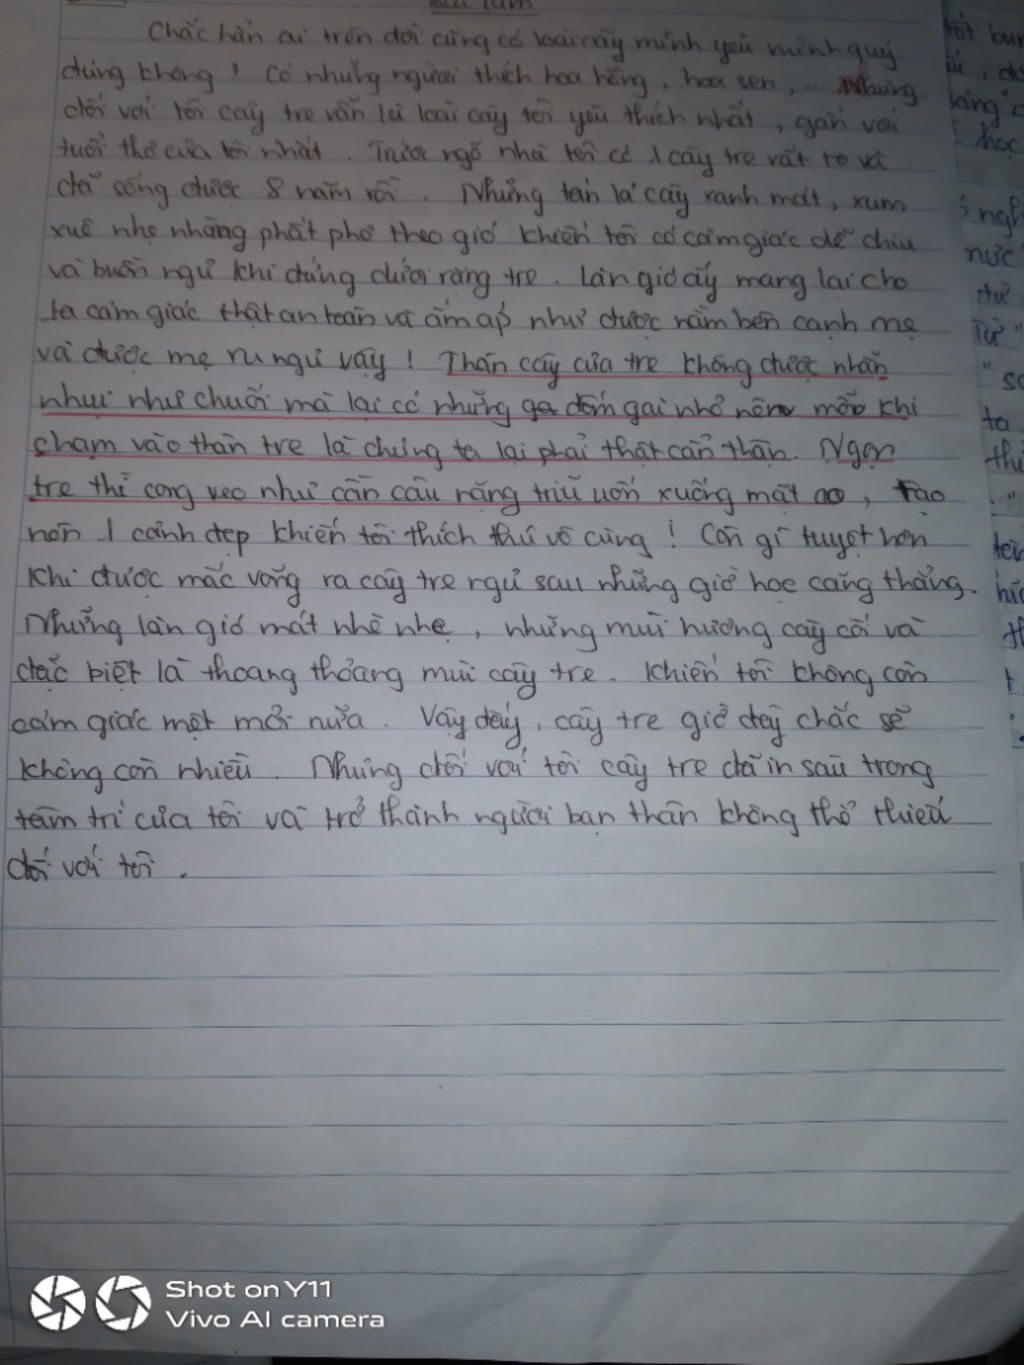 Bài làm
Chắc hẳn ai trên đời cũng có loài cây mình yêu mình quý
đúng không ? Có những người thích hoa hồng, hoa sen, ... Nhưng
đối với tôi cây tre vẫn là loài cây tôi yêu thích nhất, gắn với
tuổi thơ của tôi nhất. Trước ngõ nhà tôi có 1 cây tre rất to và
đã sống được 8 năm rồi. Những tán lá cây xanh mát, xum
xuê nhẹ nhàng phất phơ theo gió khiến tôi có cảm giác dễ chịu
và buồn ngủ khi đứng dưới rặng tre. Làn gió ấy mang lại cho
ta cảm giác thật an toàn và ấm áp như được nằm bên cạnh mẹ
và được mẹ ru ngủ vậy ! Thân cây của tre không được nhẵn
nhụi như chuối mà lại có những đốm gai nhỏ nên mỗi khi
chạm vào thân tre là chúng ta lại phải thật cẩn thận. Ngọn
tre thì cong veo như cần câu nặng trĩu uốn xuống mặt ao, tạo
nên 1 cảnh đẹp khiến tôi thích thú vô cùng ! Còn gì tuyệt hơn
khi được mắc võng ra cây tre ngủ sau những giờ học căng thẳng.
Những làn gió mát nhè nhẹ, những mùi hương cây cối và
đặc biệt là thoang thoảng mùi cây tre. Khiến tôi không còn
cảm giác mệt mỏi nữa. Vậy đấy, cây tre giờ đây chắc sẽ
không còn nhiều. Nhưng đối với tôi cây tre đã in sâu trong
tâm trí của tôi và trở thành người bạn thân không thể thiếu
đối với tôi.
Shot on Y11
Vivo AI camera